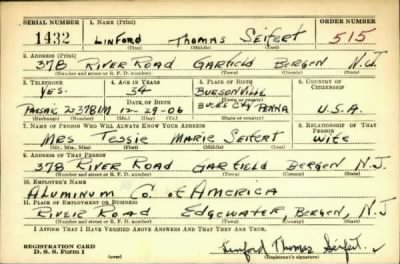 SERIAL NUMBER 1. NAME (Print) ORDER NUMBER
1432 LINFORD THOMAS SEIFERT 515
(First) (Middle) (Last)
2. ADDRESS (Print)
37B RIVER ROAD GARFIELD BERGEN N.J.
(Number and street or R. F. D. number) (Town) (County) (State)
3. TELEPHONE 4. AGE IN YEARS 5. PLACE OF BIRTH 6. COUNTRY OF CITIZENSHIP
YES. 34 BURSONVILLE
DATE OF BIRTH (Town or county)
PASSAIC 2-3781M 12-29-06 BUCKS CITY PENNA U.S.A.
(Exchange) (Number) (Mo.) (Day) (Yr.) (State or country)
7. NAME OF PERSON WHO WILL ALWAYS KNOW YOUR ADDRESS 8. RELATIONSHIP OF THAT PERSON
MRS TESSIE MARIE SEIFERT WIFE
(Mr., Mrs., Miss) (First) (Middle) (Last)
9. ADDRESS OF THAT PERSON
37B RIVER ROAD GARFIELD BERGEN N.J.
(Number and street or R. F. D. number) (Town) (County) (State)
10. EMPLOYER'S NAME
ALUMINUM CO. of AMERICA
11. PLACE OF EMPLOYMENT OR BUSINESS
RIVER ROAD EDGEWATER, BERGEN, N.J
(Number and street or R. F. D. number) (Town) (County) (State)
I AFFIRM THAT I HAVE VERIFIED ABOVE ANSWERS AND THAT THEY ARE TRUE.
REGISTRATION CARD
D. S. S. Form 1 (over) Linford Thomas Seifert.
(Registrant's signature)